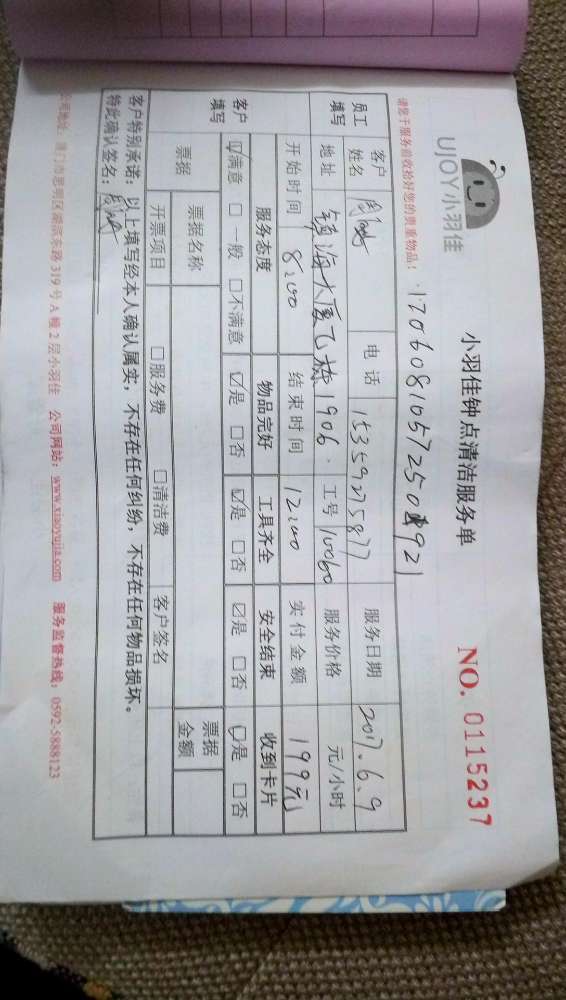 UJOY小羽佳
小羽佳钟点清洁服务单
NO. 0115237
请您于服务前收拾好您的贵重物品!
员工填写 客户姓名 电话 15359275877 服务日期 2017.6.9
地址 镇海大厦乙栋1906. 工号 10060 服务价格 元/小时
开始时间 8:00 结束时间 12:00 实付金额 199元
客户填写 服务态度 物品完好 工具齐全 安全结束 收到卡片
☑满意 □一般 □不满意 ☑是 □否 ☑是 □否 ☑是 □否 ☑是 □否
票据 票据名称 票据金额
开票项目 □服务费 □清洁费 客户签名
客户特别承诺:以上填写经本人确认属实,不存在任何纠纷,不存在任何物品损坏。
特此确认签名:
公司地址:厦门市思明区湖滨东路319号A幢2层小羽佳 公司网站:www.xiaoyujia.com 服务监督热线:0592-5888123